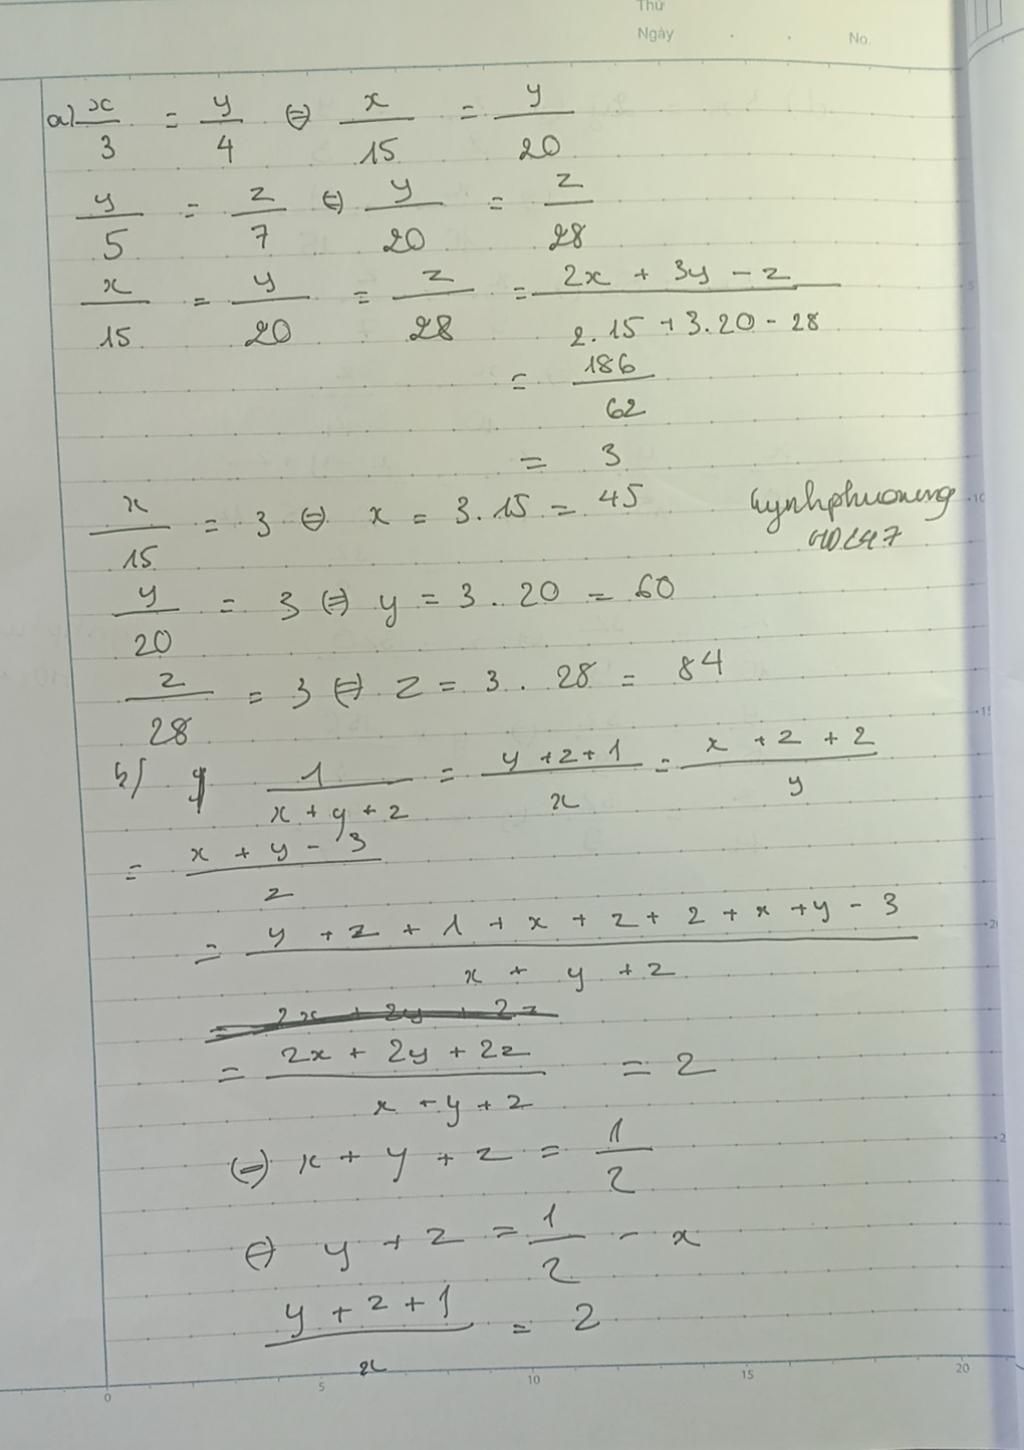 Thứ
Ngày . . No.
a) x/3 = y/4 ⇔ x/15 = y/20
y/5 = z/7 ⇔ y/20 = z/28
x/15 = y/20 = z/28 = (2x + 3y - z)/(2.15 + 3.20 - 28)
= 186/62
= 3
x/15 = 3 ⇔ x = 3.15 = 45
y/20 = 3 ⇔ y = 3.20 = 60
z/28 = 3 ⇔ z = 3.28 = 84
b) 1/(x + y + z) = (y + z + 1)/x = (x + z + 2)/y
= (x + y - 3)/z
= (y + z + 1 + x + z + 2 + x + y - 3)/(x + y + z)
= (2x + 2y + 2z)/(x + y + z) = 2
⇔ x + y + z = 1/2
⇔ y + z = 1/2 - x
(y + z + 1)/x = 2
0 5 10 15 20